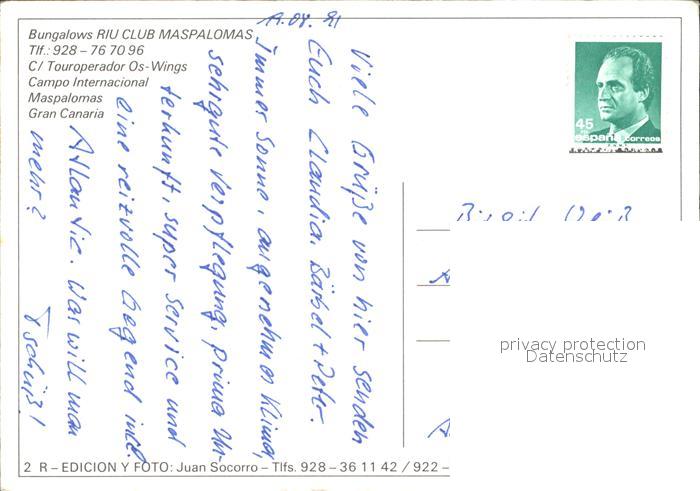 Bungalows RIU CLUB MASPALOMAS
Tlf.: 928 – 76 70 96
C/ Touroperador Os-Wings
Campo Internacional
Maspalomas
Gran Canaria
Viele Grüße von hier senden
Euch Claudia, Bärbel + Peter.
Immer Sonne, angenehmes Klima,
sehr gute Verpflegung, prima Un-
terkunft, super Service und
eine reizvolle Gegend incl.
Atlantic. Was will man
mehr?
Tschüß!
45
españa correos
privacy protection
Datenschutz
2 R – EDICION Y FOTO: Juan Socorro – Tlfs. 928 – 36 11 42 / 922 –